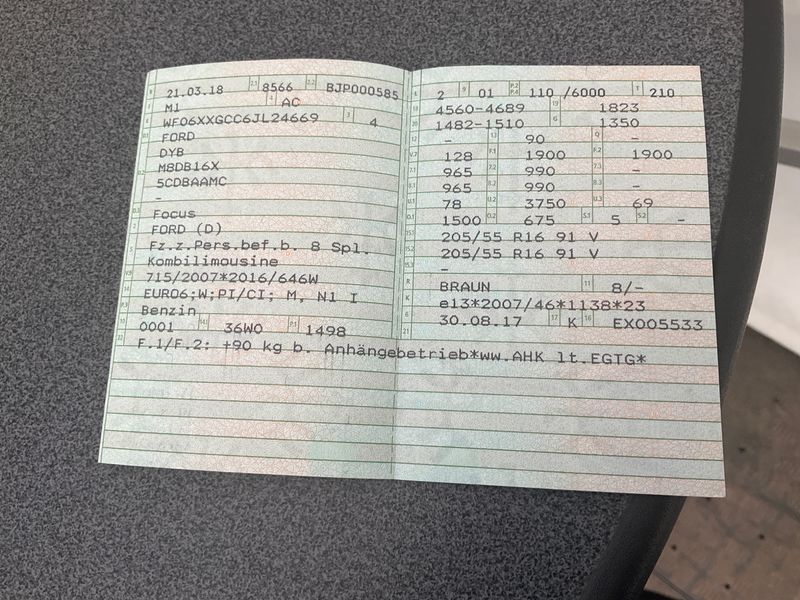 21.03.18 8566 BJP000585
M1 AC
WF06XXGCC6JL24669 4
FORD
DYB
M8DB16X
5CDBAAMC
-
Focus
FORD (D)
Fz.z.Pers.bef.b. 8 Spl.
Kombilimousine
715/2007*2016/646W
EURO6;W;PI/CI; M, N1 I
Benzin
0001 36W0 1498
F.1/F.2: +90 kg b. Anhängebetrieb*ww.AHK lt.EGTG*
2 01 110 /6000 210
4560-4689 1823
1482-1510 1350
- 90 -
128 1900 1900
965 990 -
965 990 -
78 3750 69
1500 675 5 -
205/55 R16 91 V
205/55 R16 91 V
-
BRAUN 8/-
e13*2007/46*1138*23
30.08.17 K EX005533